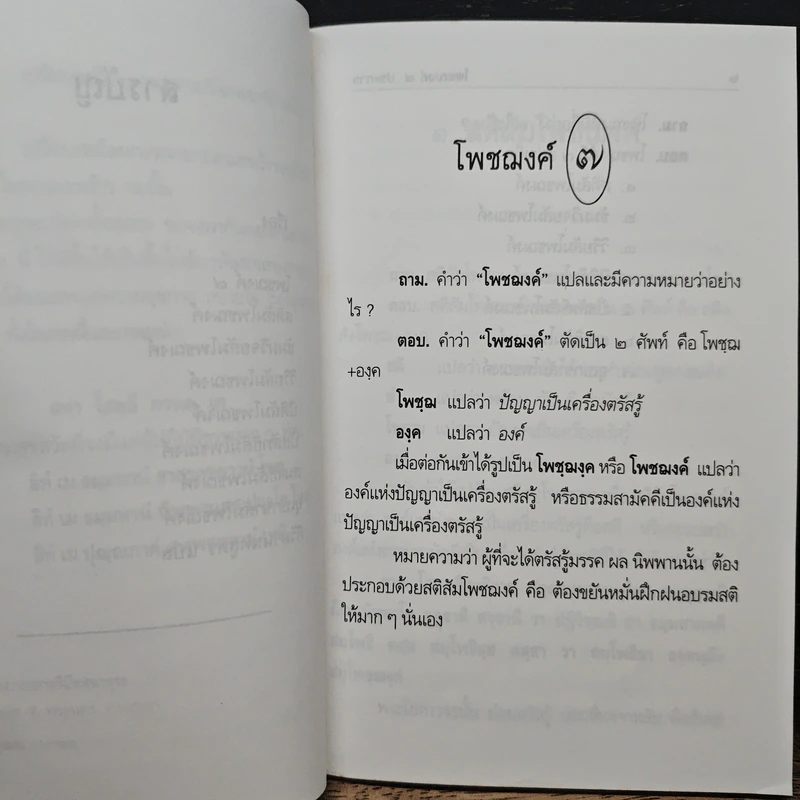 โพชฌงค์ ๗
ถาม. คำว่า “โพชฌงค์” แปลและมีความหมายว่าอย่าง
ไร ?
ตอบ. คำว่า “โพชฌงค์” ตัดเป็น ๒ ศัพท์ คือ โพชฺฌ
+องฺค
โพชฺฌ แปลว่า ปัญญาเป็นเครื่องตรัสรู้
องฺค แปลว่า องค์
เมื่อต่อกันเข้าได้รูปเป็น โพชฺฌงฺค หรือ โพชฌงค์ แปลว่า
องค์แห่งปัญญาเป็นเครื่องตรัสรู้ หรือธรรมสามัคคีเป็นองค์แห่ง
ปัญญาเป็นเครื่องตรัสรู้
หมายความว่า ผู้ที่จะได้ตรัสรู้มรรค ผล นิพพานนั้น ต้อง
ประกอบด้วยสติสัมโพชฌงค์ คือ ต้องขยันหมั่นฝึกฝนอบรมสติ
ให้มาก ๆ นั่นเอง